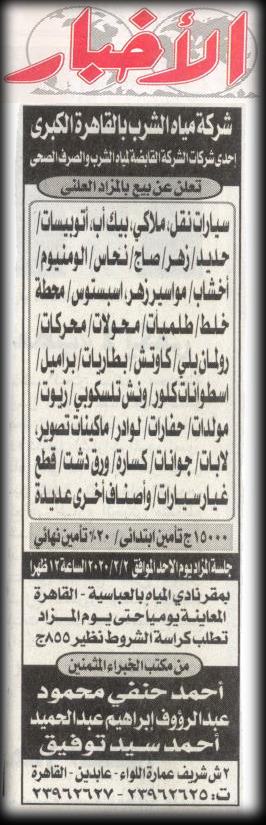 الأخبار
شركة مياه الشرب بالقاهرة الكبرى
احدى شركات الشركة القابضة لمياه الشرب والصرف الصحى
تعلن عن بيع بالمزاد العلنى
سيارات نقل، ملاكي، بيك أب، أتوبيسات/
حديد/ زهر/ صاج/ نحاس/ الومنيوم/
أخشاب/ مواسير زهر، اسبستوس/ محطة
خلط/ طلمبات/ محولات/ محركات/
رولمان بلي/ كاوتش/ بطاريات/ براميل/
اسطوانات كلور/ ونش تلسكوبي/ زيوت/
مولدات/ حفارات/ لوادر/ ماكينات تصوير،
لابات/ جوانات/ كسارة/ ورق دشت/ قطع
غيار سيارات/ وأصناف أخرى عديدة
١٥٠٠٠ ج تأمين ابتدائى/ ٢٠٪ تأمين نهائي
جلسة المزاد يوم الاحد الموافق ٢٠٢٠/٢/٢ الساعة ١٢ ظهرا
بمقر نادي المياه بالعباسية - القاهرة
المعاينة يوميا حتى يوم المزاد
تطلب كراسة الشروط نظير ٨٥٥ج
من مكتب الخبراء المثمنين
أحمد حنفي محمود
عبدالرؤوف إبراهيم عبدالحميد
أحمد سيد توفيق
٢ ش شريف عمارة اللواء - عابدين - القاهرة
ت: ٢٣٩٦٢٦٢٥ - ٢٣٩٦٢٦٢٧